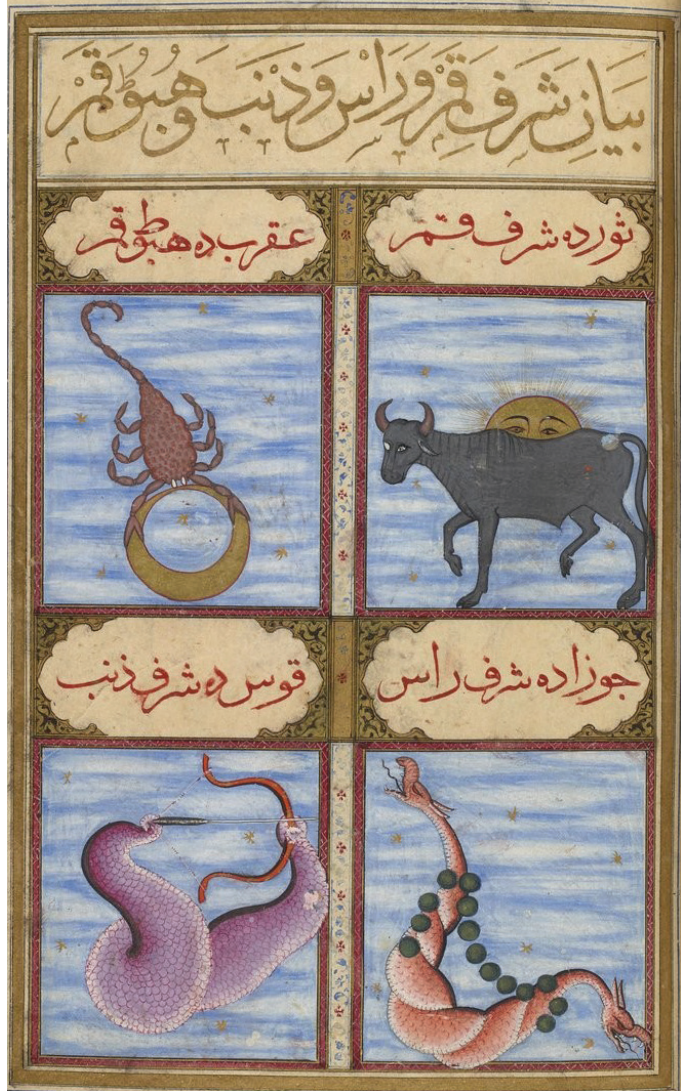 بيان شرف قمر و راس و ذنب و هبوط قمر
ثورده شرف قمر
عقربده هبوط قمر
جوزاده شرف راس
قوسده شرف ذنب